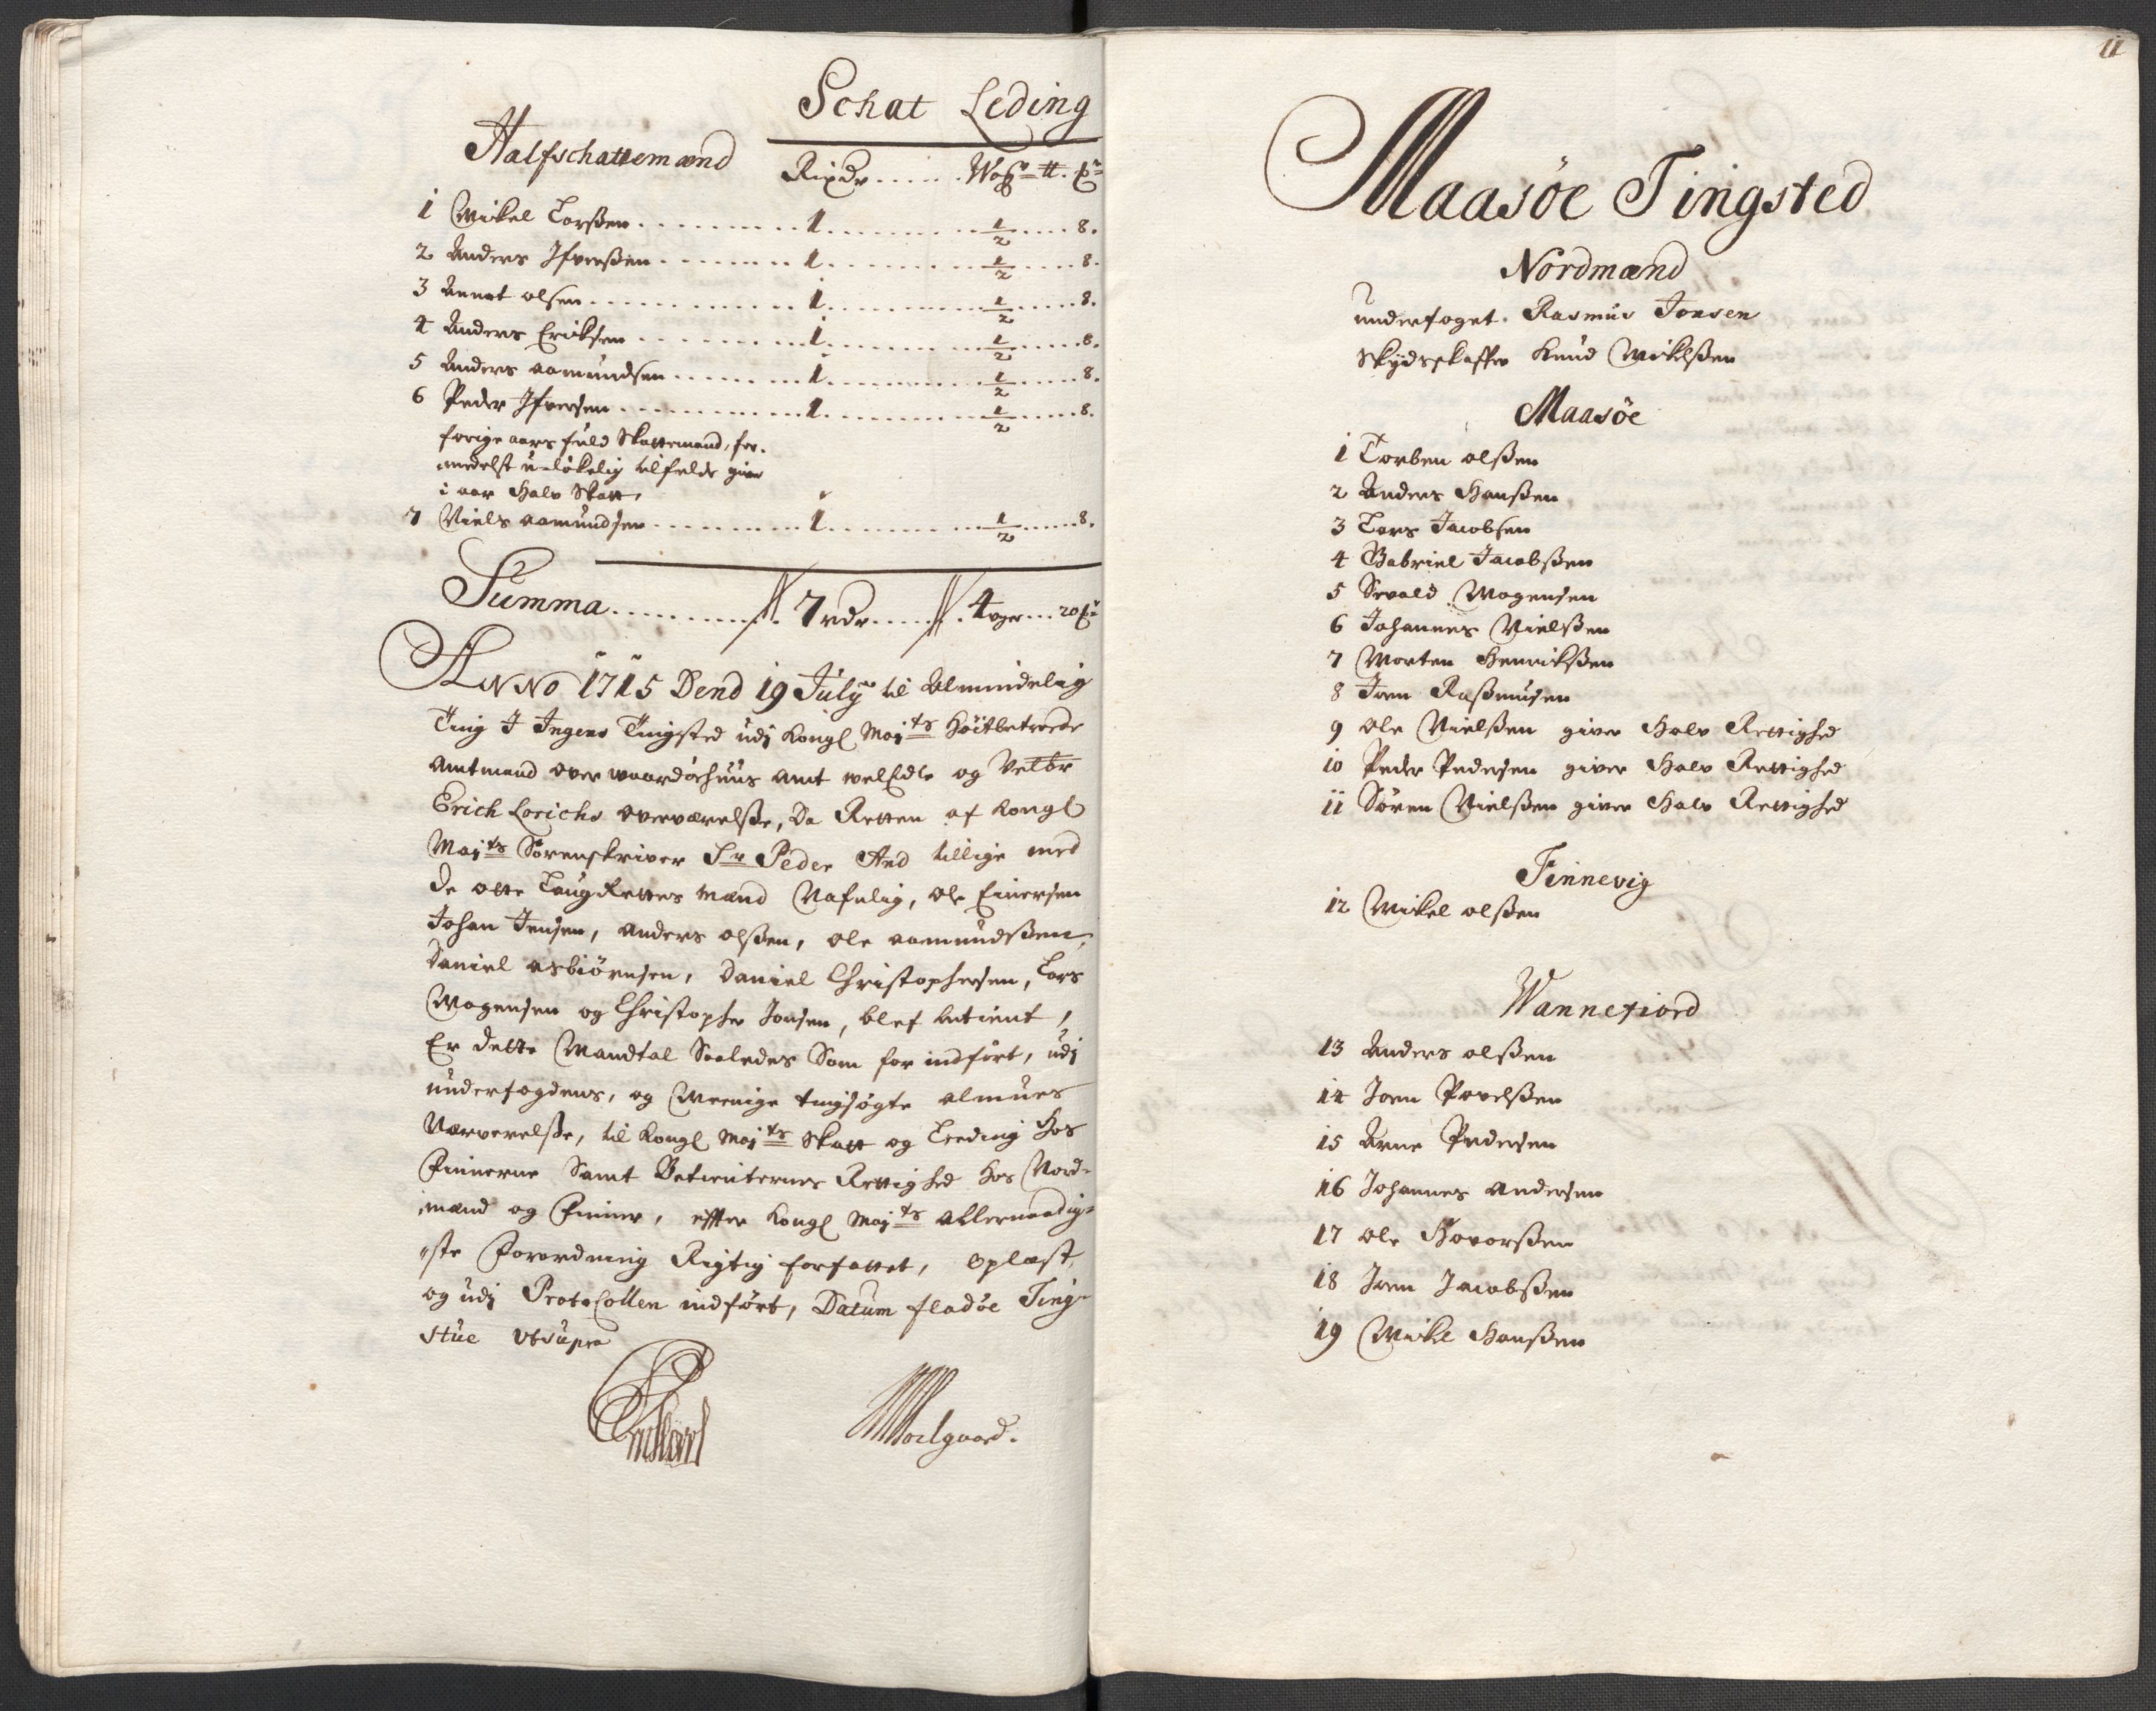 Schat Leding
Halfschattemænd Rixdr ..... Woger ℔. pr
1 Mickel Larßen ......... 1 ......... 1/2 ..... 8.
2 Anders Ifverßen ....... 1 ......... 1/2 ..... 8.
3 olsen ............ 1 ......... 1/2 ..... 8.
4 Anders Ericksen ....... 1 ......... 1/2 ..... 8.
5 Anders aamundsen ...... 1 ......... 1/2 ..... 8.
6 Peder Ifversen ........ 1 ......... 1/2 ..... 8.
forige aars fuld Skattemand, for-
medelst u-lökelig tilfelde giver
i aar Halv Skatt,
7 Niels aamundsen ....... 1 ......... 1/2 ..... 8.
Summa ......... // 7 rdr ..... // 4 wger ... 20
ANNO 1715 Dend 19 July til Almindelig
Ting I Ingens Tingsted udj Kongl Majts Höitbetroede
Amtmand over waardöehuus amt welEdle og Velbr
Erich Lorichs overværelße, Da Retten af Kongl
Majts Sorenskriver Sr Peder And tillige med
de otte LaugRettes mænd Nafnlig, Ole Einersen
Johan Jensen, Anders olßen, ole aamundßen,
Daniel asbiörnsen, Daniel Christophersen, Lars
Mogensen og Christopher Jonsen, blef betient,
Er dette Mandtal Saaledes Som for indfört, udj
underfogdens, og Meenige tingsögte almues
Nærverelße, til Kongl Majts Skatt og Leeding hos
Finnerne Samt Betienternes Rettighed hos Nord-
mænd og Finner, efter Kongl Majts Allernaadig-
ste Forordning Rigtig forfattet, oplæst,
og udj Protocollen indfört, Datum fladöe Ting-
stue Utsupra
Woelgaard.
11
Maasöe Tingsted
Nordmænd
underfoget. Rasmus Jonsen
Skydsskaffer Knud Mickelßen
Maasöe
1 Torben olßen
2 Anders Hanßen
3 Lars Jacobsen
4 Gabriel Jacobßen
5 Sevald Mogensen
6 Johannes Nielßen
7 Morten Henrickßen
8 Joen Raßmusen
9 Ole Nielßen giver Halv Rettighed
10 Peder Pedersen giver Halv Rettighed
11 Sören Nielßen giver Halv Rettighed
Finnevig
12 Mickel olßen
Wannefiord
13 Anders olßen
14 Joen Povelßen
15 Arne Pedersen
16 Johannes Andersen
17 Ole Hovorßen
18 Joen Jacobßen
19 Mickel Hanßen